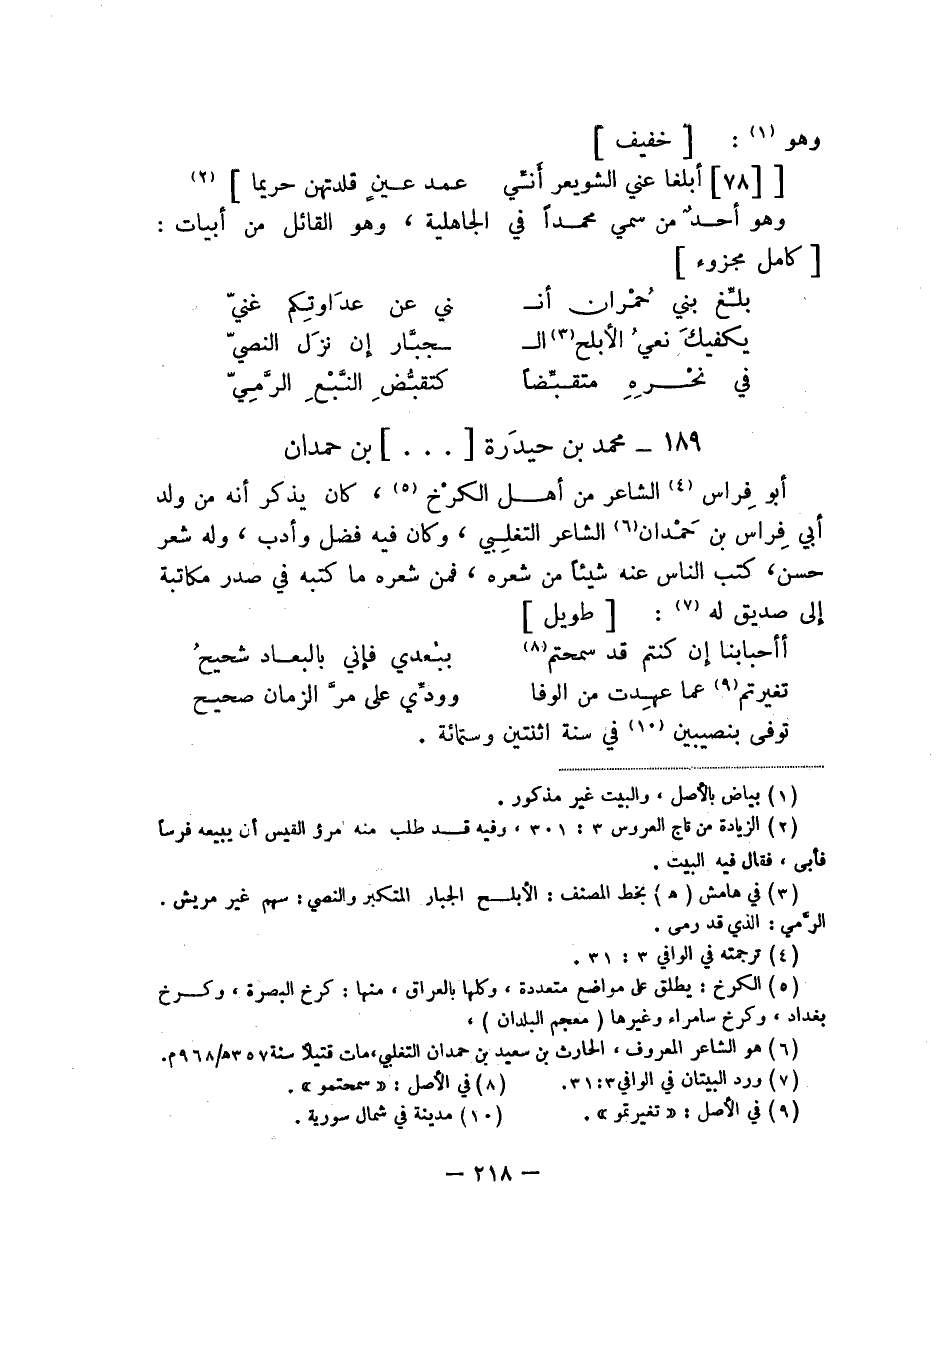 وهو (١) : [ خفيف ]
[ [٧٨] أبلغا عني الشويعر أَنّي عمد عـين قلدتهن حريما ] (٢)
وهو أحـدٌ من سمي محمـداً في الجاهلية ، وهو القائل من أبيات :
[ كامل مجزوء ]
بلّغ بني حُمْران أنـ ني عن عدَاوتِكم غنيّ
يكفيكَ نعيُ الأبلج(٣) الـ ـجبَّار إن نزَل النصيّ
في نحْـرِهِ متقـبِّضاً كتقبُّضِ النَّبْعِ الرَّمِيّ
١٨٩ ــ محمد بن حيدَرة [ . . . ] بن حمدان
أبو فِراس (٤) الشاعر من أهـل الكرْخ (٥) ، كان يذكر أنه من ولد
أبي فِراس بن حَمْدان(٦) الشاعر التغلِبي ، وكان فيه فضل وأدب ، وله شعر
حسن، كتب الناس عنه شيئاً من شعره ، فمن شعره ما كتبه في صدر مكاتبة
إلى صديق له (٧) : [ طويل ]
أأحبابنا إن كنتم قد سمحتم(٨) ببُعدي فإني بالبعـاد شحيحُ
تغيرتم(٩) عما عهدت من الوفا وودِّي على مرَّ الزمان صحيح
توفى بنصيبين (١٠) في سنة اثنتين وستمائة .
(١) بياض بالأصل ، والبيت غير مذكور .
(٢) الزيادة من تاج العروس ٣ : ٣٠١ ، وفيه قـد طلب منه امرؤ القيس أن يبيعه فرساً
فأبى ، فقال فيه البيت .
(٣) في هامش ( ه ) بخط المصنف : الأبلـج الجبار المتكبر والنصي : سهم غير مريش .
الرَّمي : الذي قد رمى .
(٤) ترجمته في الوافي ٣ : ٣١ .
(٥) الكرخ : يطلق على مواضع متعددة ، وكلها بالعراق ، منها : كرخ البصرة ، وكـرخ
بغداد ، وكرخ سامراء وغيرها ( معجم البلدان ) ،
(٦) هو الشاعر المعروف ، الحارث بن سعيد بن حمدان التغلبي،مات قتيلاً سنة٣٥٧ه/٩٦٨م.
(٧) ورد البيتان في الوافي٣:٣١. (٨) في الأصل : « سمحتمو » .
(٩) في الأصل : « تغيرتمو » . (١٠) مدينة في شمال سورية .
— ٢١٨ —